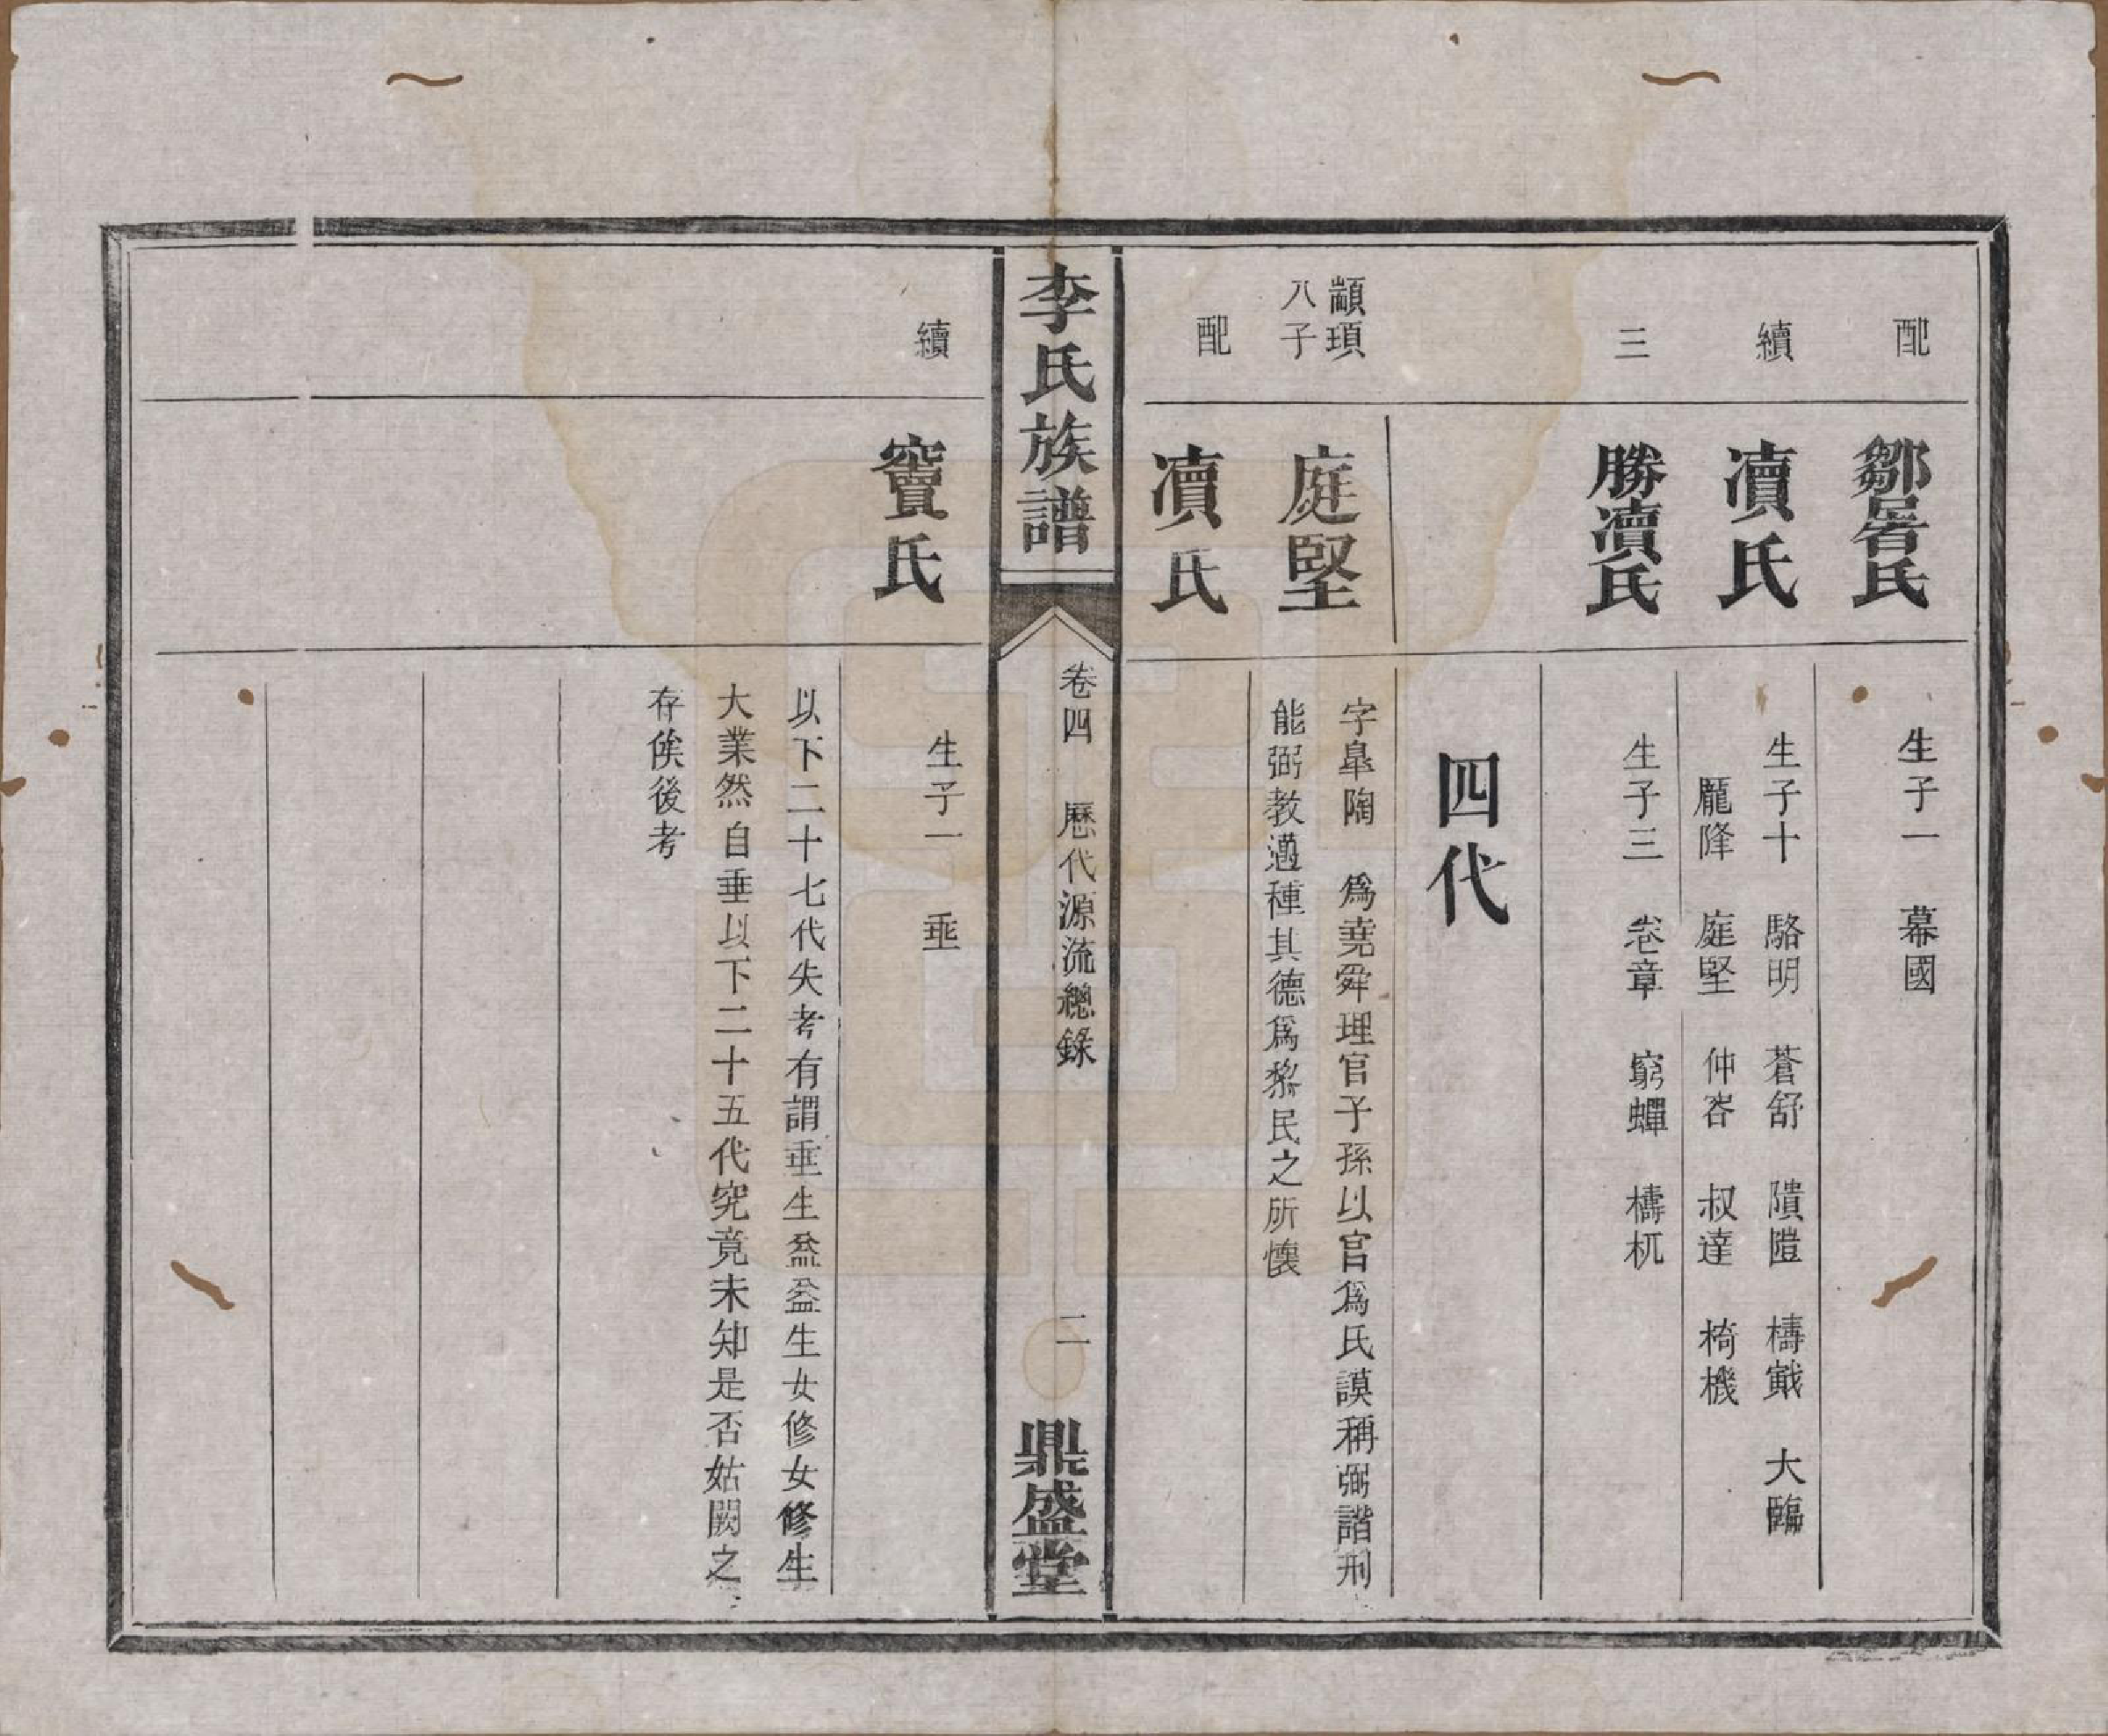 配
鄒屠氏
生子一　幕國
續
凟氏
生子十　駱明　蒼舒　隤隑　檮戭　大臨
龎降　庭堅　仲容　叔達　椅機
三
勝凟氏
生子三　卷章　窮蟬　檮杌
四代
顓頊
八子
庭堅
字臯陶　爲堯舜理官子孫以官爲氏謨稱弼諧刑
能弼教邁種其德爲黎民之所懷
配
凟氏
李氏族譜
卷四　歷代源流總錄
二
鼎盛堂
續
竇氏
生子一　垂
以下二十七代失考有謂垂生益益生女修女修生
大業然自垂以下二十五代究竟未知是否姑闕之
存俟後考